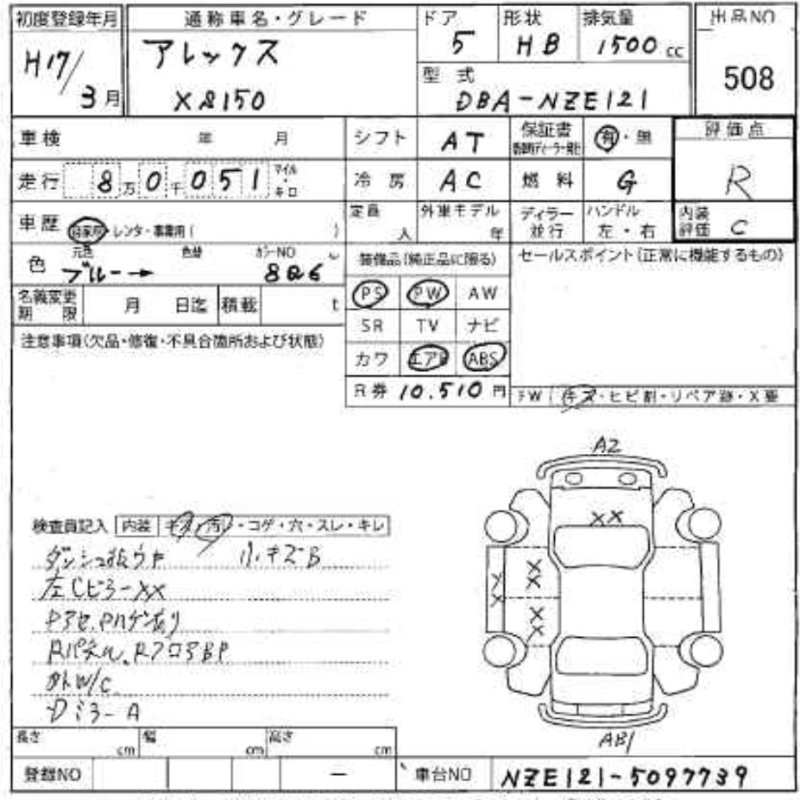 初度登録年月 通称車名・グレード ドア 形状 排気量 出品NO
H17/3月 アレックス 5 HB 1500cc 508
XS150 型式 DBA-NZE121
車検 年 月 シフト AT 保証書 有・無 評価点
走行 8万0千051 マイル・キロ 冷房 AC 燃料 G R
車歴 自家用・レンタ・事業用( ) 定員 人 外車モデル 年 ディラー並行 ハンドル 左・右 内装評価 C
色 元色 ブルー→ 色替 カラーNO 8Q6 装備品(純正品に限る) セールスポイント(正常に機能するもの)
名義変更期限 月 日迄 積載 t PS PW AW
注意事項(欠品・修復・不具合箇所および状態) SR TV ナビ
カワ エアB ABS
R券 10.510円 FW キズ・ヒビ割・リペア跡・X要
A2
XX
検査員記入 内装 キズ・汚・コゲ・穴・スレ・キレ
小キズB
左Cピラ-XX
Rパネル、RフロアBP
外W/C
Dミラ-A
XX XX XX
AB1
長さ cm 幅 cm 高さ cm
登録NO - 車台NO NZE121-5097739